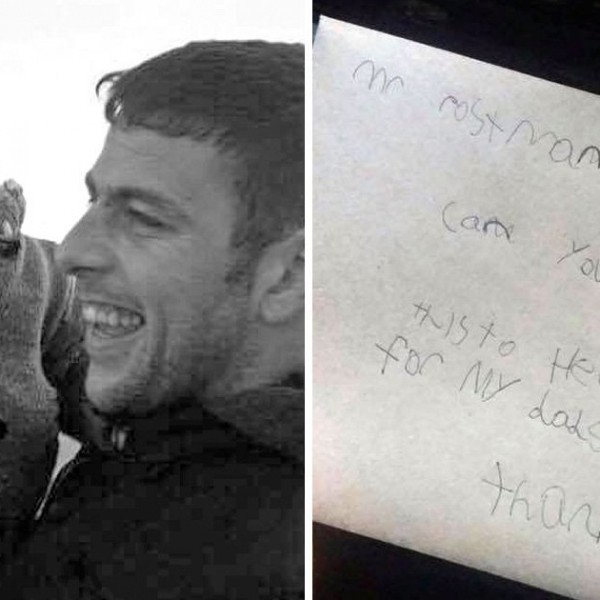 Mr Postman
Can You
this to He
for My dads
than